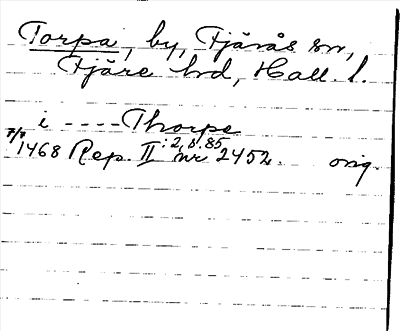 Torpa, by, Fjärås sn,
Fjäre hd, Hall. l.
i ---- Thorpe
7/7 1468 Rep. II:2, s. 85 nr 2452. orig.